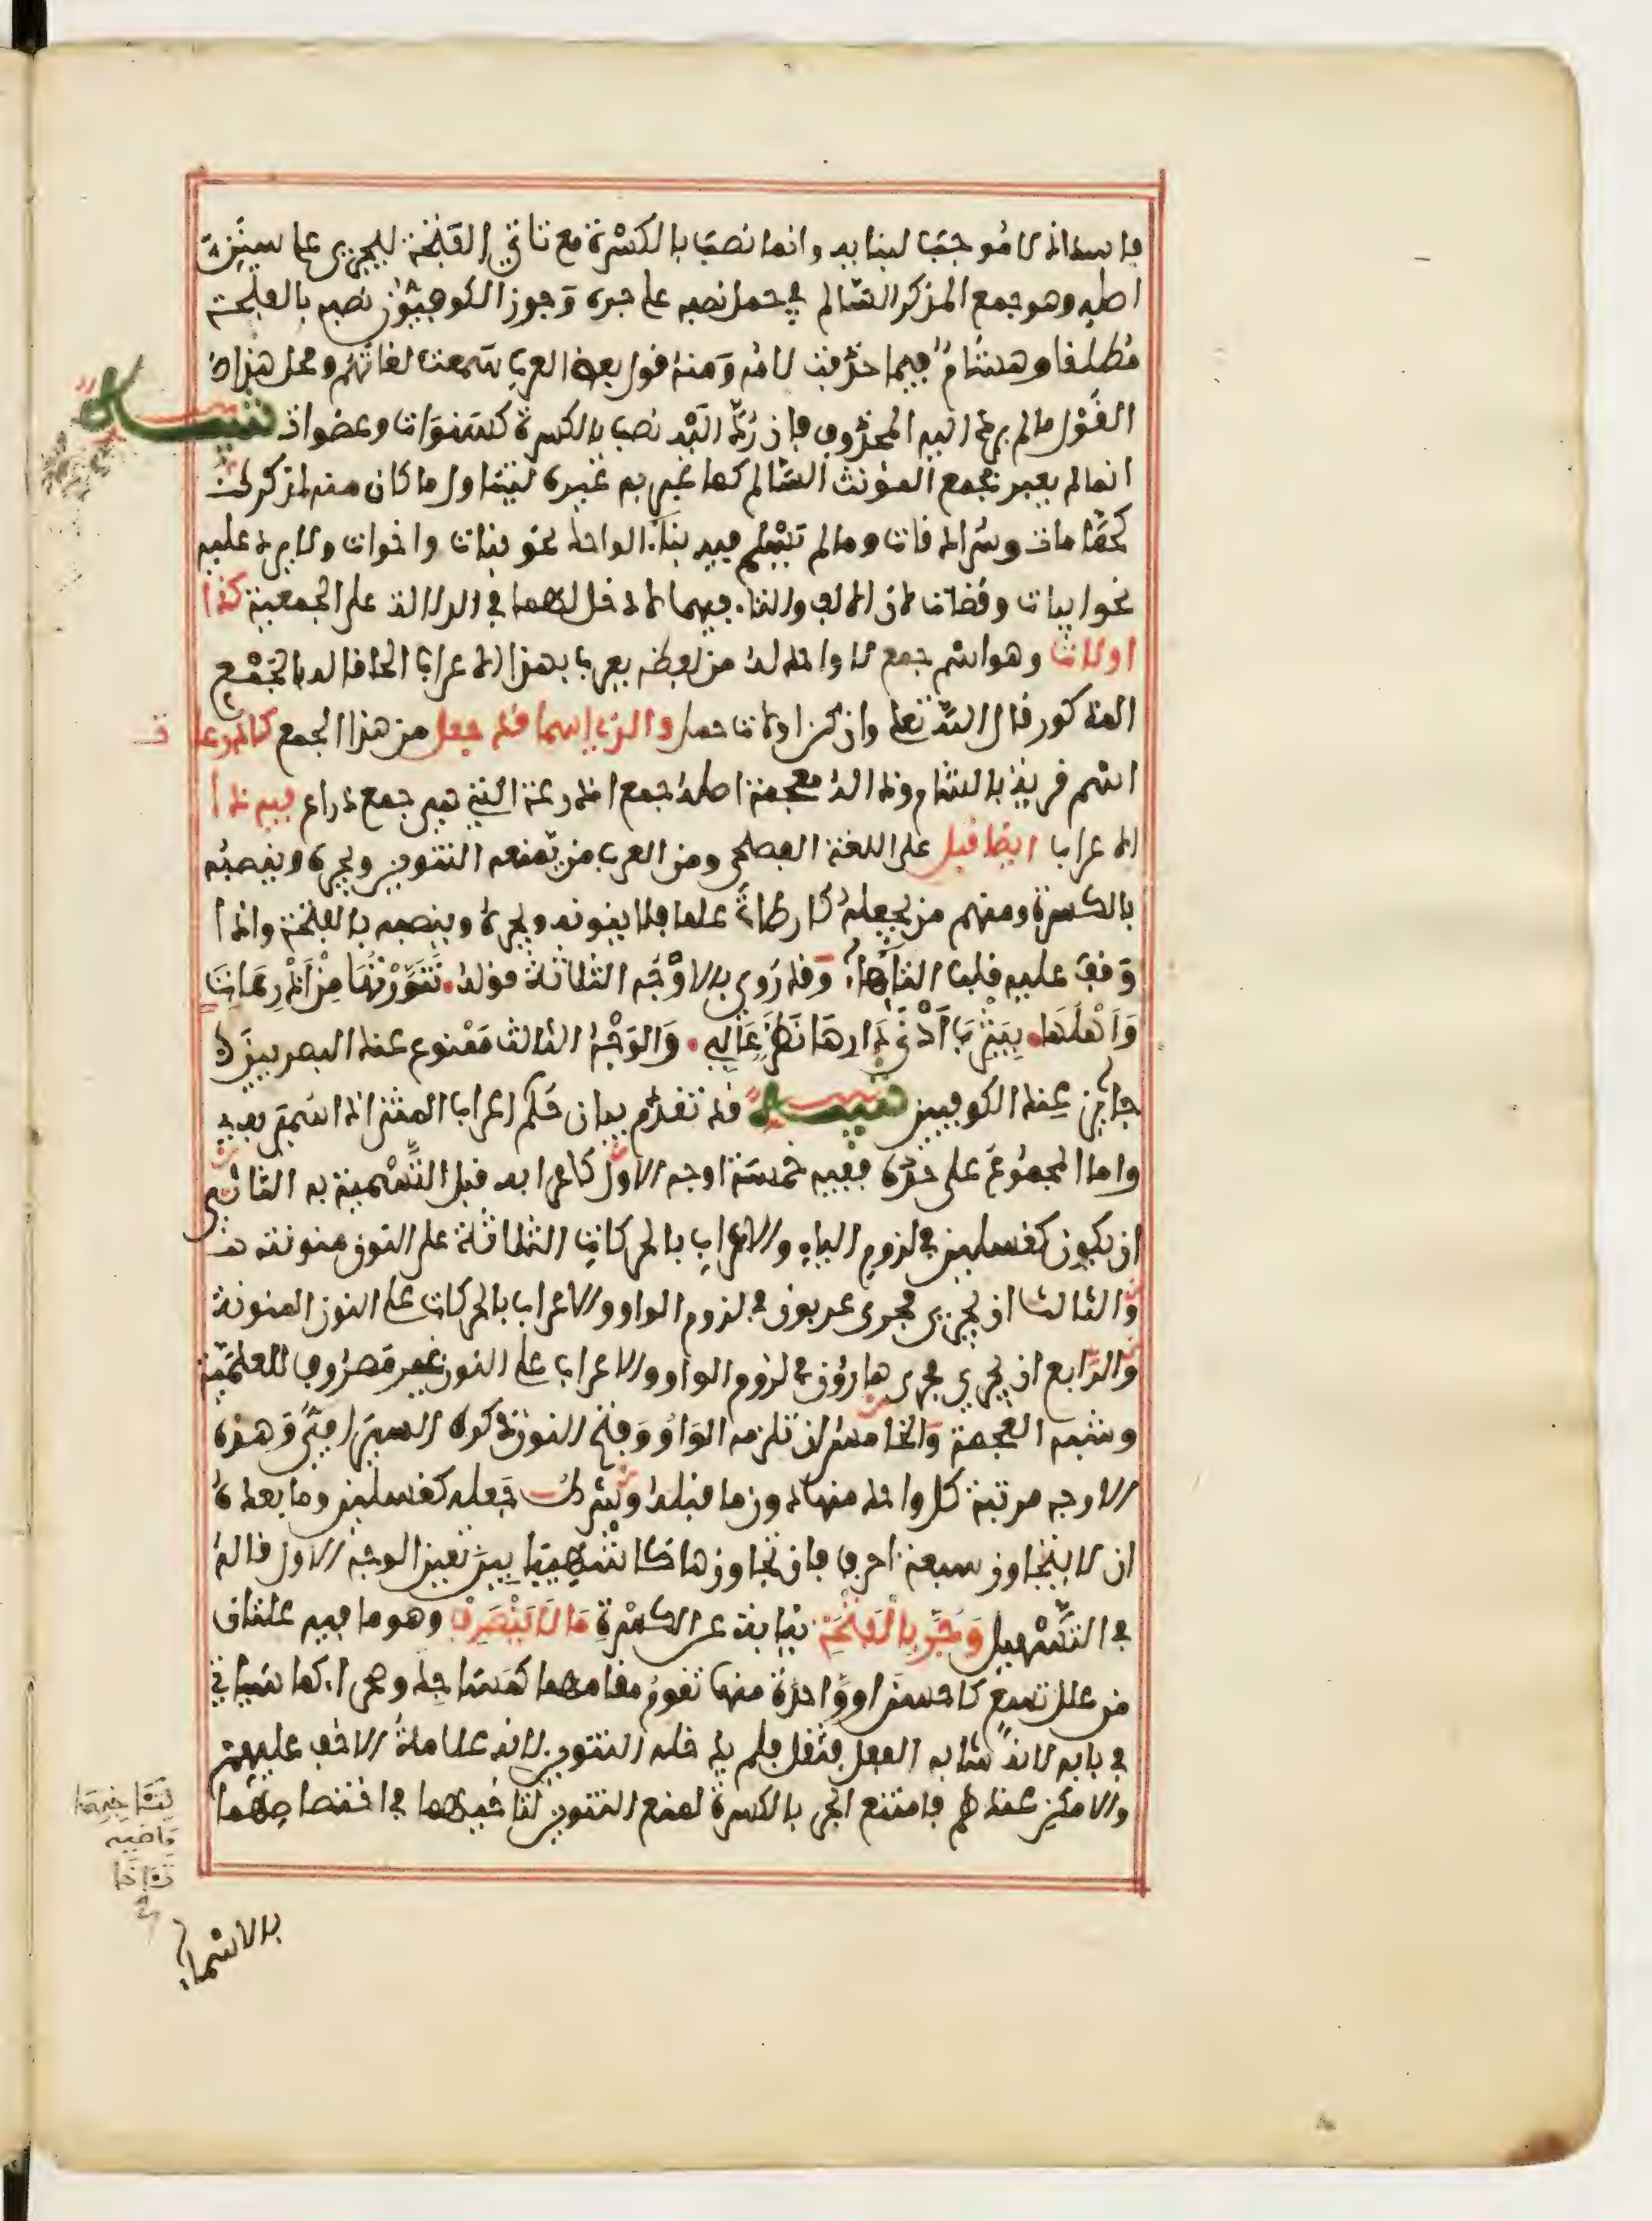 فاسد اذ لا موجب لبنايه وانما نصب بالكسرة مع تاتي الفتحة ليجري على سنن
اصله وهو جمع المذكر السالم في حمل نصبه على جره وجوز الكوفيون نصبه بالفتحة
مطلقا وهشام فيما حذفت لامه ومنه قول بعض العرب سمعت لغاتهم ومحل هذا
القول ما لم يرد اليه المحذوف فان رد اليه نصب بالكسرة كسنوات وعضوات تنبيه
انما لم يعبر بجمع المونث السالم كما عبر به غيره ليتناول ما كان منه لمذكر
كحمامات وسرادقات وما لم يسلم فيه بناء الواحد نحو بنات واخوات ولا يرد عليه
نحو ابيات وقضاة لان الالف والتاء فيهما لا دخل لهما في الدلالة على الجمعية كذا
اولات وهو اسم جمع لا واحد له من لفظه يعرب بهذا الاعراب الحاقا له بالجمع
المذكور قال الله تعلى وان كن اولات حمل والذي اسما قد جعل من هذا الجمع كاذرعات
اسم قرية بالشام وذاله معجمة اصله جمع اذرعة التي هي جمع ذراع فيه ذا
الاعراب ايضا قبل على اللغة الفصحى ومن العرب من يمنعه التنوين ويجره وينصبه
بالكسرة ومنهم من يجعله كارطاة علما فلا ينونه ويجره وينصبه بالفتحة واذا
وقف عليه قلب التاء هاء وقد روي بالاوجه الثلاثة قوله تنورتها من اذرعات
واهلها بيثرب ادنى دارها نظر عالي والوجه الثالث ممنوع عند البصريين
جايز عند الكوفيين تنبيه قد تقدم بيان حكم اعراب المثنى اذا سمي به
واما المجموع على حده ففيه خمسة اوجه الاول كاعرابه قبل التسمية به الثاني
ان يكون كغسلين في لزوم الياء والاعراب بالحركات الثلاثة على النون منونة
والثالث ان يجري مجرى عربون في لزوم الواو والاعراب بالحركات على النون المنونة
والرابع ان يجري مجرى هارون في لزوم الواو والاعراب على النون غير مصروف للعلمية
وشبه العجمة والخامس ان تلزمه الواو وفتح النون ذكره السيرافي وهذه
الاوجه مرتبة كل واحد منها دون ما قبله وشرط جعله كغسلين وما بعده
ان لا يتجاوز سبعة احرف فان تجاوزها كاشهيبابين تعين الوجه الاول قاله
في التسهيل وجر بالفتحة نيابة عن الكسرة ما لا ينصرف وهو ما فيه علتان
من علل تسع كاحسن او واحدة منها تقوم مقامهما كمساجد وصحراء كما سياتي
في بابه لانه شابه الفعل فثقل فلم يدخله التنوين لانه علامة الاخف عليهم
والامكن عندهم فامتنع الجر بالكسرة لمنع التنوين لتاخيهما في اختصاصهما
بالاسماء